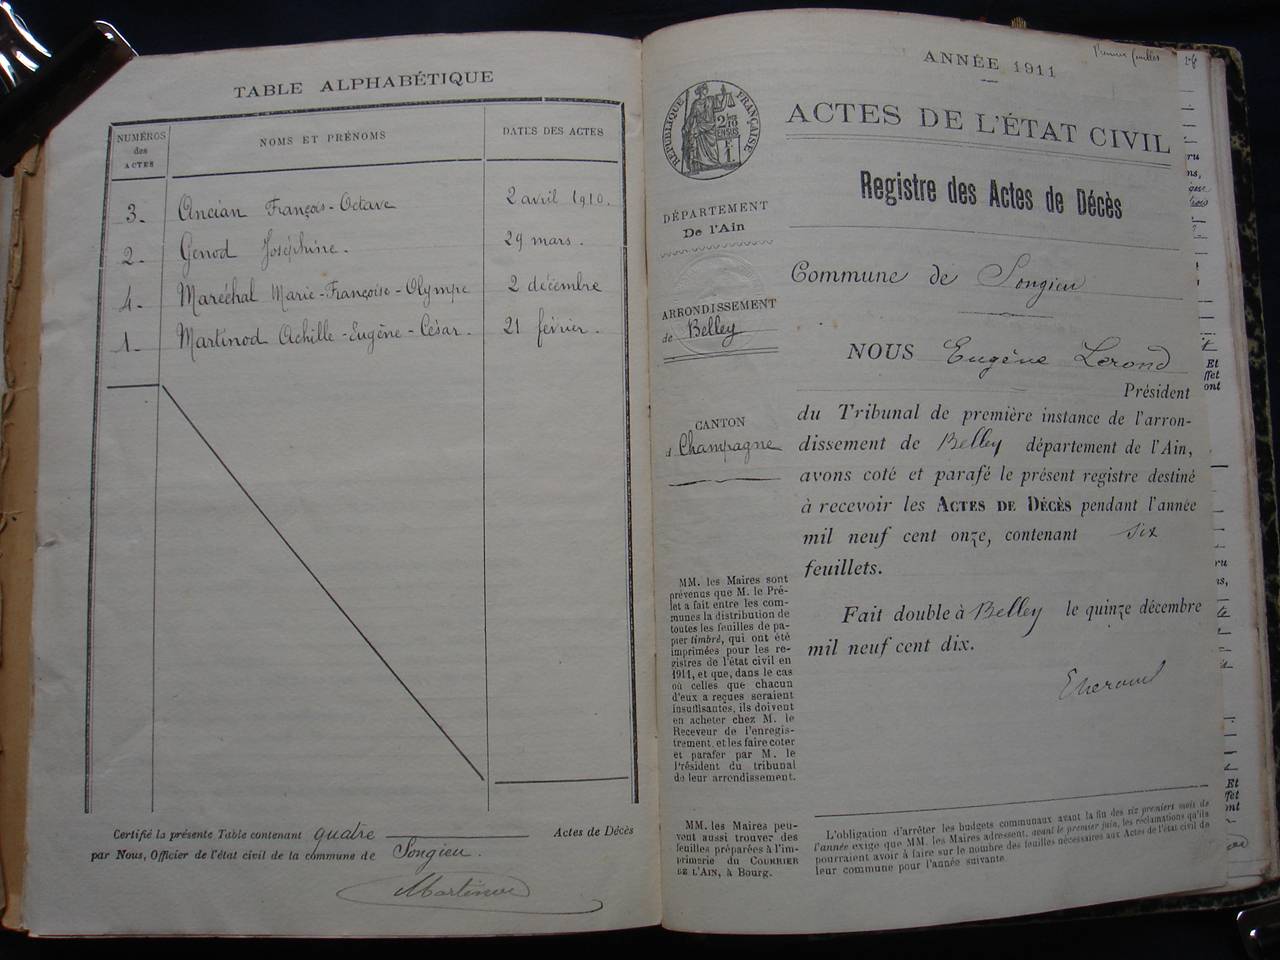 TABLE ALPHABÉTIQUE
NUMÉROS des ACTES
NOMS ET PRÉNOMS
DATES DES ACTES
3. Ancian François-Octave 2 avril 1910.
2. Genod Joséphine. 29 mars.
4. Maréchal Marie-Françoise-Olympe 2 décembre
1. Martinod Achille-Eugène-César. 21 février.
Certifié la présente Table contenant quatre Actes de Décès
par Nous, Officier de l'état civil de la commune de Songieu.
Premier feuillet
ANNÉE 1911
RÉPUBLIQUE FRANÇAISE
ACTES DE L'ÉTAT CIVIL
Registre des Actes de Décès
DÉPARTEMENT
De l'Ain
ARRONDISSEMENT
de Belley
CANTON
d Champagne
MM. les Maires sont
prévenus que M. le Pré-
fet a fait entre les com-
munes la distribution de
toutes les feuilles de pa-
pier timbré, qui ont été
imprimées pour les re-
gistres de l'état civil en
1911, et que, dans le cas
où celles que chacun
d'eux a reçues seraient
insuffisantes, ils doivent
en acheter chez M. le
Receveur de l'enregis-
trement, et les faire coter
et parafer par M. le
Président du tribunal
de leur arrondissement.
MM. les Maires peu-
vent aussi trouver des
feuilles préparées à l'im-
primerie du COURRIER
DE L'AIN, à Bourg.
Commune de Songieu
NOUS Eugène Lerond
Président
du Tribunal de première instance de l'arron-
dissement de Belley département de l'Ain,
avons coté et parafé le présent registre destiné
à recevoir les ACTES DE DÉCÈS pendant l'année
mil neuf cent onze, contenant six
feuillets.
Fait double à Belley le quinze décembre
mil neuf cent dix.
L'obligation d'arrêter les budgets communaux avant la fin des six premiers mois de
l'année exige que MM. les Maires adressent, avant le premier juin, les réclamations qu'ils
pourraient avoir à faire sur le nombre des feuilles nécessaires aux Actes de l'état civil de
leur commune pour l'année suivante.